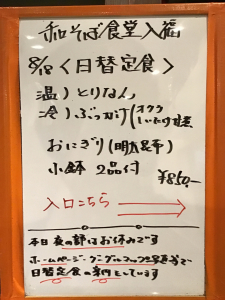 和そば食堂 入福
8/18 〈日替定食〉
温) とりなん
冷) ぶっかけ (オクラ
しいたけ甘煮
おにぎり (明太昆布)
小鉢 2品付
¥850.-
入口こちら
本日 夜の部はお休みです
ホームページ・グーグルマップ
日替定食の案内をしています